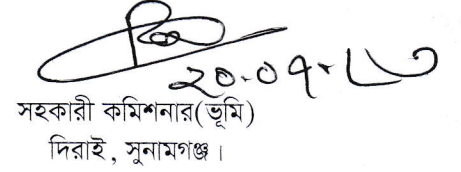 ২০.০৭.১৩
সহকারী কমিশনার(ভূমি)
দিরাই, সুনামগঞ্জ।